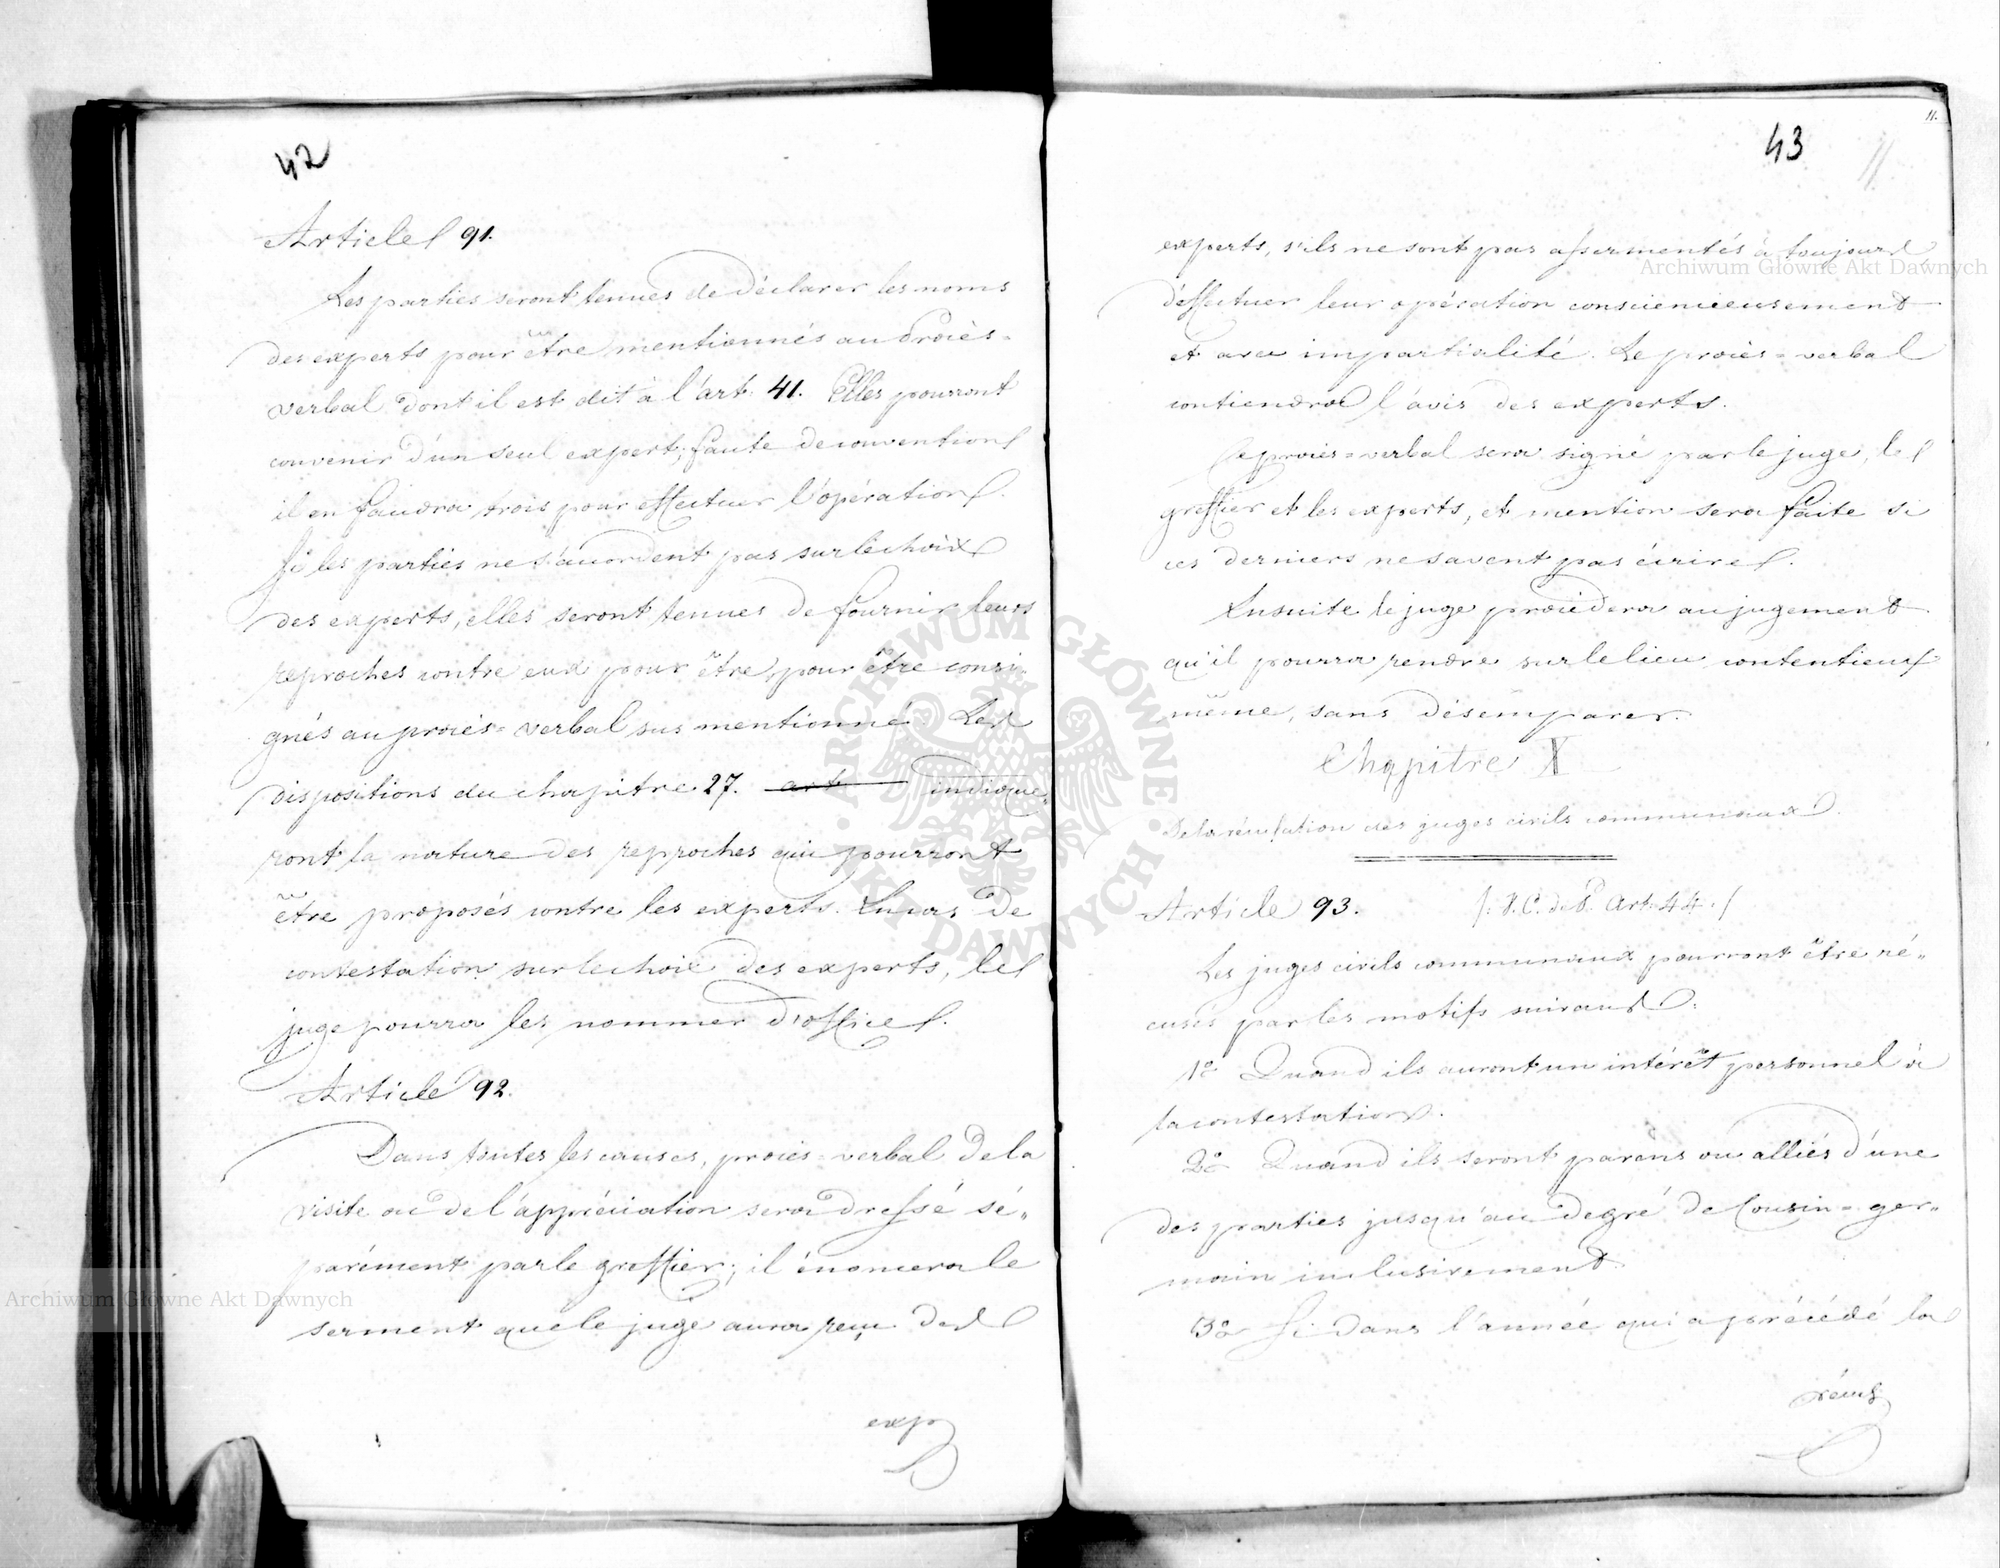 42
Article 91.
Les parties seront tenues de déclarer les noms
des experts pour être mentionnés au procès=
verbal dont il est dit à l'art. 41. Elles pourront
convenir d'un seul expert; faute de convention
il en faudra trois pour effectuer l'opération.
Si les parties ne s'accordent pas sur le choix
des experts, elles seront tenues de fournir leurs
reproches contre eux pour être, pour être consi=
gnés au procès=verbal sus mentionné. Les
dispositions du chapitre 27. art indique=
ront la nature des reproches qui pourront
être proposés contre les experts. En cas de
contestation sur le choix des experts, le
juge pourra les nommer d'office.
Article 92.
Dans toutes les causes, procès=verbal de la
visite ou de l'appréciation sera dressé sé=
parément par le greffier; il énoncera le
serment que le juge aura reçu des
exp
43
11
11.
experts, s'ils ne sont pas assermentés à toujours
d'effectuer leur opération consciencieusement
et avec impartialité. Le procès=verbal
contiendra l'avis des experts.
Ce procès=verbal sera signé par le juge, le
greffier et les experts, et mention sera faite si
ces derniers ne savent pas écrire.
Ensuite le juge procèdera au jugement
qu'il pourra rendre sur le lieu contentieux
même, sans désemparer.
Chapitre X
De la récusation des juges civils communaux.
Article 93. /: P.C. d. P. Art. 44. :/
Les juges civils communaux pourront être ré=
cusés par les motifs suivants:
1º Quand ils auront un intérêt personnel à
la contestation.
2º Quand ils seront parens ou alliés d'une
des parties jusqu'au degré de Cousin=ger=
main inclusivement.
3º Si dans l'année qui a précédé la
récus
Archiwum Główne Akt Dawnych
Archiwum Główne Akt Dawnych
ARCHIWUM GŁÓWNE · AKT DAWNYCH ·